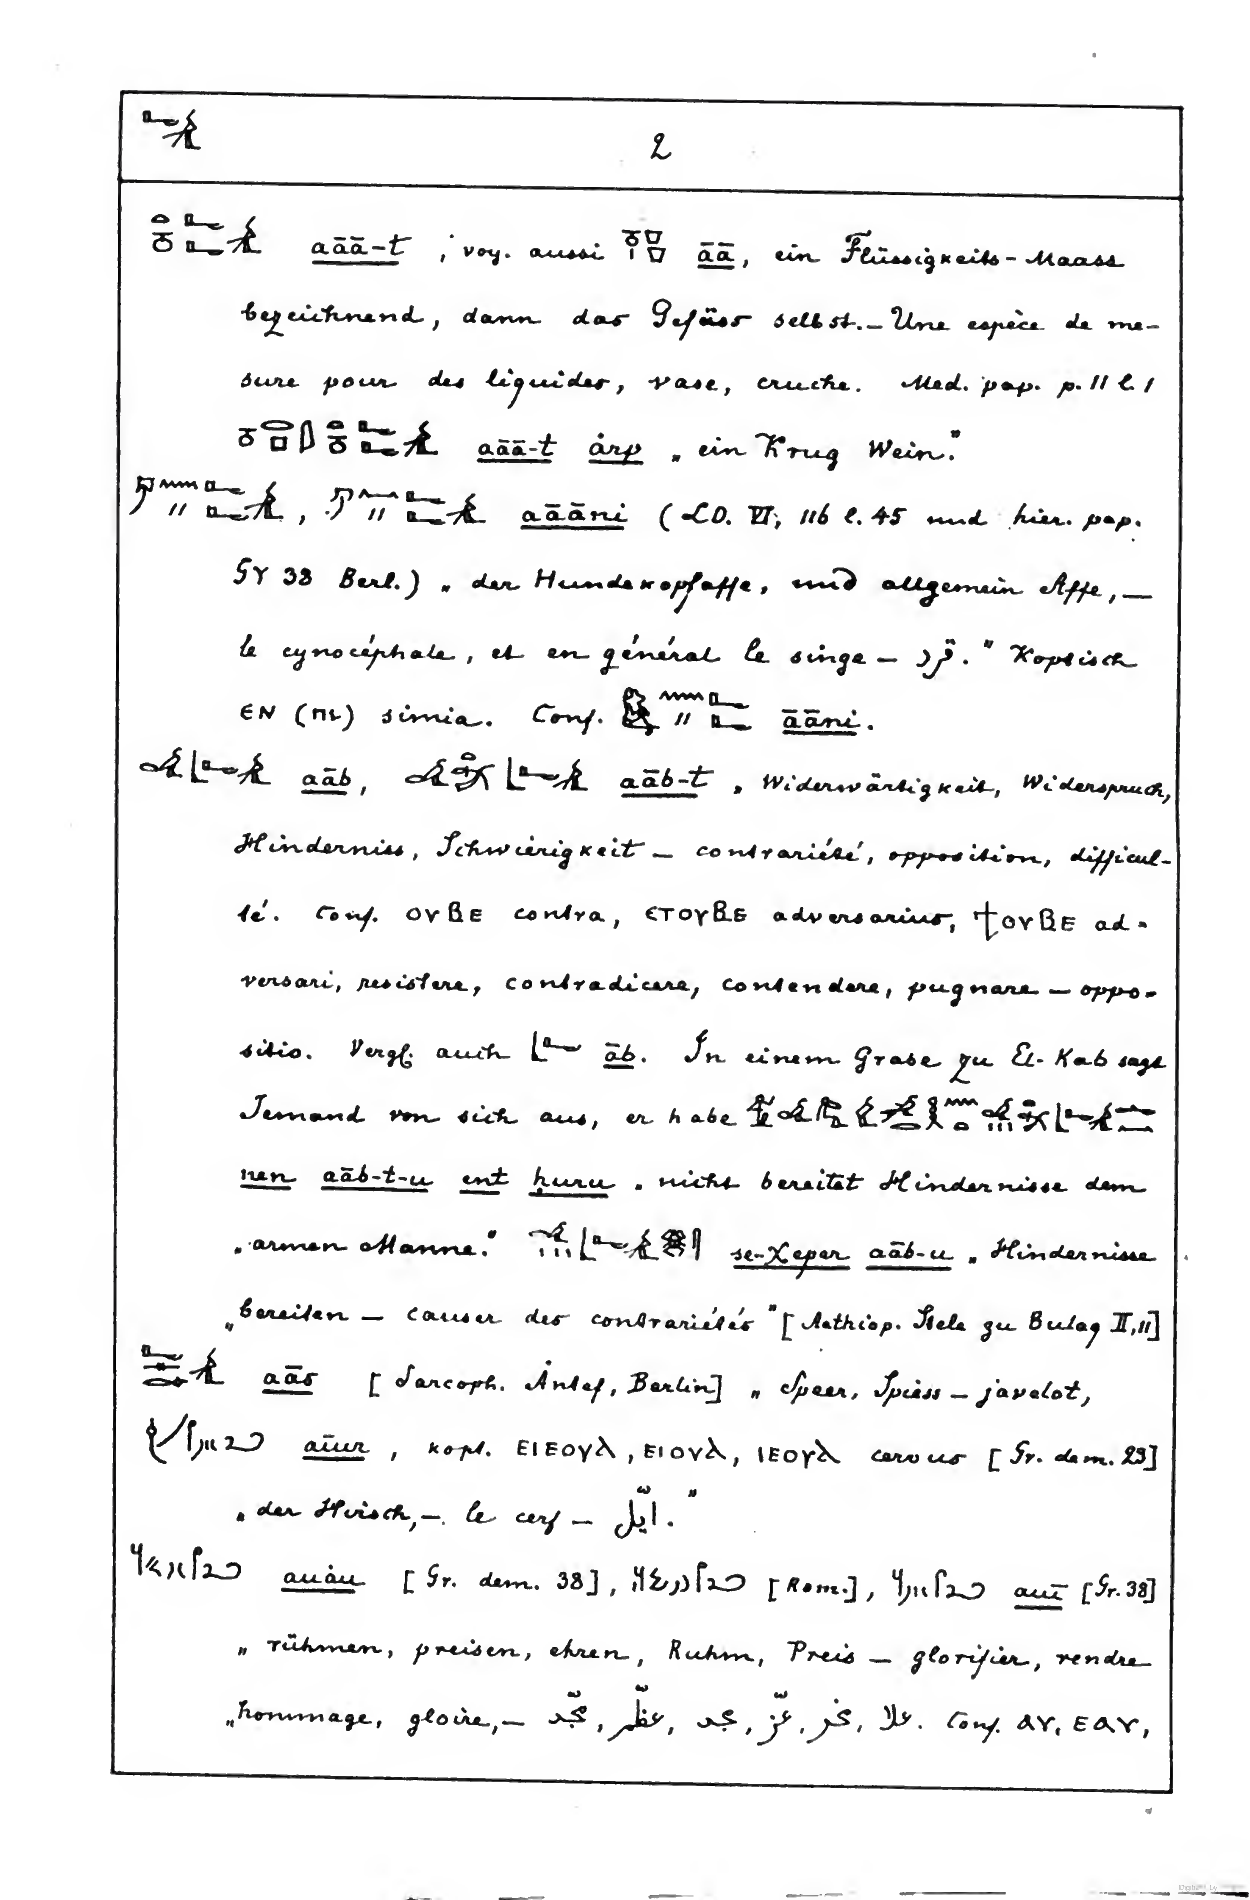 2
aāā-t, voy. aussi āā, ein Flüssigkeits-Maass
bezeichnend, dann das Gefäss selbst. – Une espèce de me-
sure pour des liquides, vase, cruche. Med. pap. p. 11 l. 1
aāā-t ȧrp „ein Krug Wein."
, aāāni (LD. VI, 116 l. 45 und hier. pap.
GY 38 Berl.) „der Hundskopfaffe, und allgemein Affe, —
le cynocéphale, et en général le singe – قرد." Koptisch
ЄΝ (ⲡⲓ) simia. Conf. āāni.
aāb, aāb-t „Widerwärtigkeit, Widerspruch,
Hinderniss, Schwierigkeit – contrariété, opposition, difficul-
té. Conf. ⲟⲩⲃⲉ contra, ⲉⲧⲟⲩⲃⲉ adversarius, ϯⲟⲩⲃⲉ ad-
versari, resistere, contradicere, contendere, pugnare – oppo-
sitio. Vergl. auch āb. In einem Grabe zu El-Kab sagt
Jemand von sich aus, er habe
nen aāb-t-u ent ḥuru „nicht bereitet Hindernisse dem
„armen Manne." se-χeper aāb-u „Hindernisse
„bereiten – causer des contrariétés" [Aethiop. Stele zu Bulaq II, 11]
aās [Sarcoph. Ȧntef, Berlin] „Speer, Spiess – javelot,
aīur, kopt. ⲉⲓⲉⲟⲩⲗ, ⲉⲓⲟⲩⲗ, ⲓⲉⲟⲩⲗ cervus [Gr. dem. 23]
„der Hirsch, – le cerf – ايّل."
auȧu [Gr. dem. 38], [Rom.], auī [Gr. 38]
„rühmen, preisen, ehren, Ruhm, Preis – glorifier, rendre
„hommage, gloire, – مجّد, عظّم, مجد, عزّ, فخر, علا. Conf. ⲁⲩ, ⲉⲁⲩ,